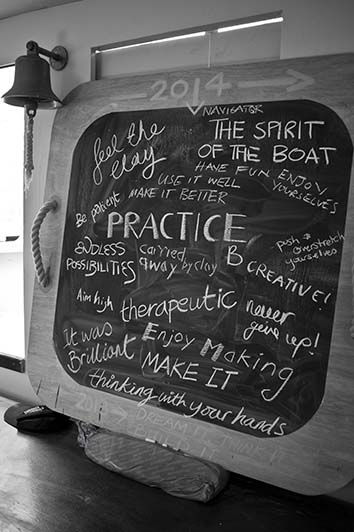 2014 →
NAVIGATOR
feel the
clay
THE SPIRIT
OF THE BOAT
HAVE FUN ENJOY
YOURSELVES
USE IT WELL
MAKE IT BETTER
Be patient
PRACTICE
push & overstretch
yourselves
ENDLESS
POSSIBILITIES
carried
away by clay
B
CREATIVE!
Aim high
therapeutic
never
give up!
It was
Brilliant
Enjoy Making
MAKE IT
thinking with your hands
201
DREAM IT THINK IT